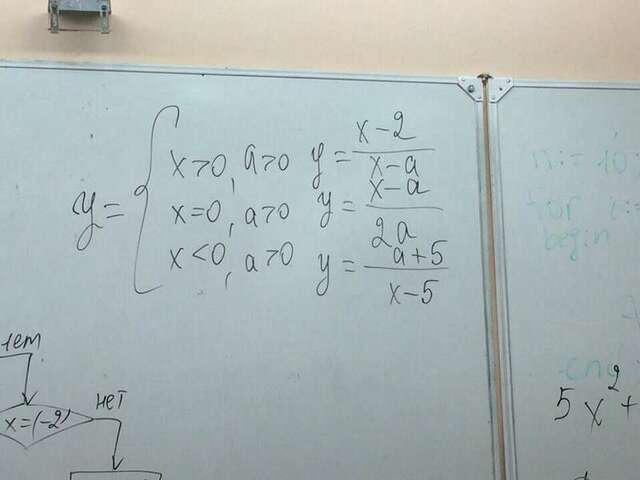 y =
x>0, a>0 y = x-2 / x-a
x=0, a>0 y = x-a / 2a
x<0, a>0 y = a+5 / x-5
нет
x=(-2)
нет
n:= 10;
for i:=
begin
end
5x²+